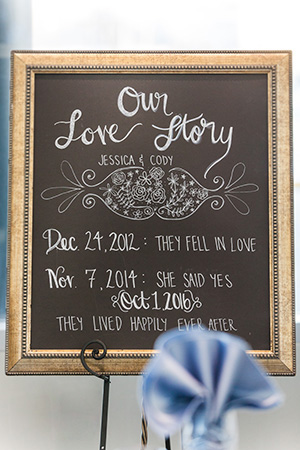 Our
Love Story
JESSICA & CODY
Dec. 24, 2012: THEY FELL IN LOVE
Nov. 7, 2014: SHE SAID YES
Oct 1, 2016
THEY LIVED HAPPILY EVER AFTER